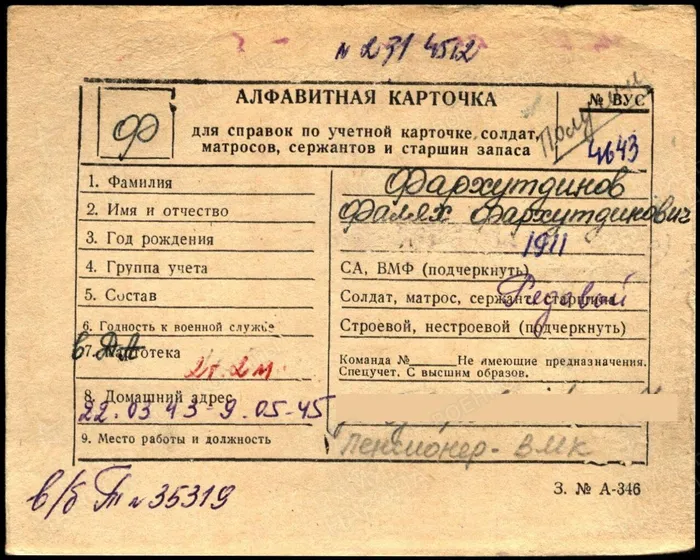 № 231 4512
АЛФАВИТНАЯ КАРТОЧКА
№ ВУС
Ф
для справок по учетной карточке солдат,
матросов, сержантов и старшин запаса
4643
1. Фамилия Фархутдинов
2. Имя и отчество Фалях Фархутдинович
3. Год рождения 1911
4. Группа учета СА, ВМФ (подчеркнуть)
5. Состав Солдат, матрос, сержант, старшина Рядовой
6. Годность к военной службе Строевой, нестроевой (подчеркнуть)
7. Картотека Команда №____ Не имеющие предназначения.
в РА
Спецучет. С высшим образов.
2г. 2м.
8. Домашний адрес
22.03 43-9.05-45
9. Место работы и должность Пенсионер - ВМК
в/б Т № 35319
З. № А-346